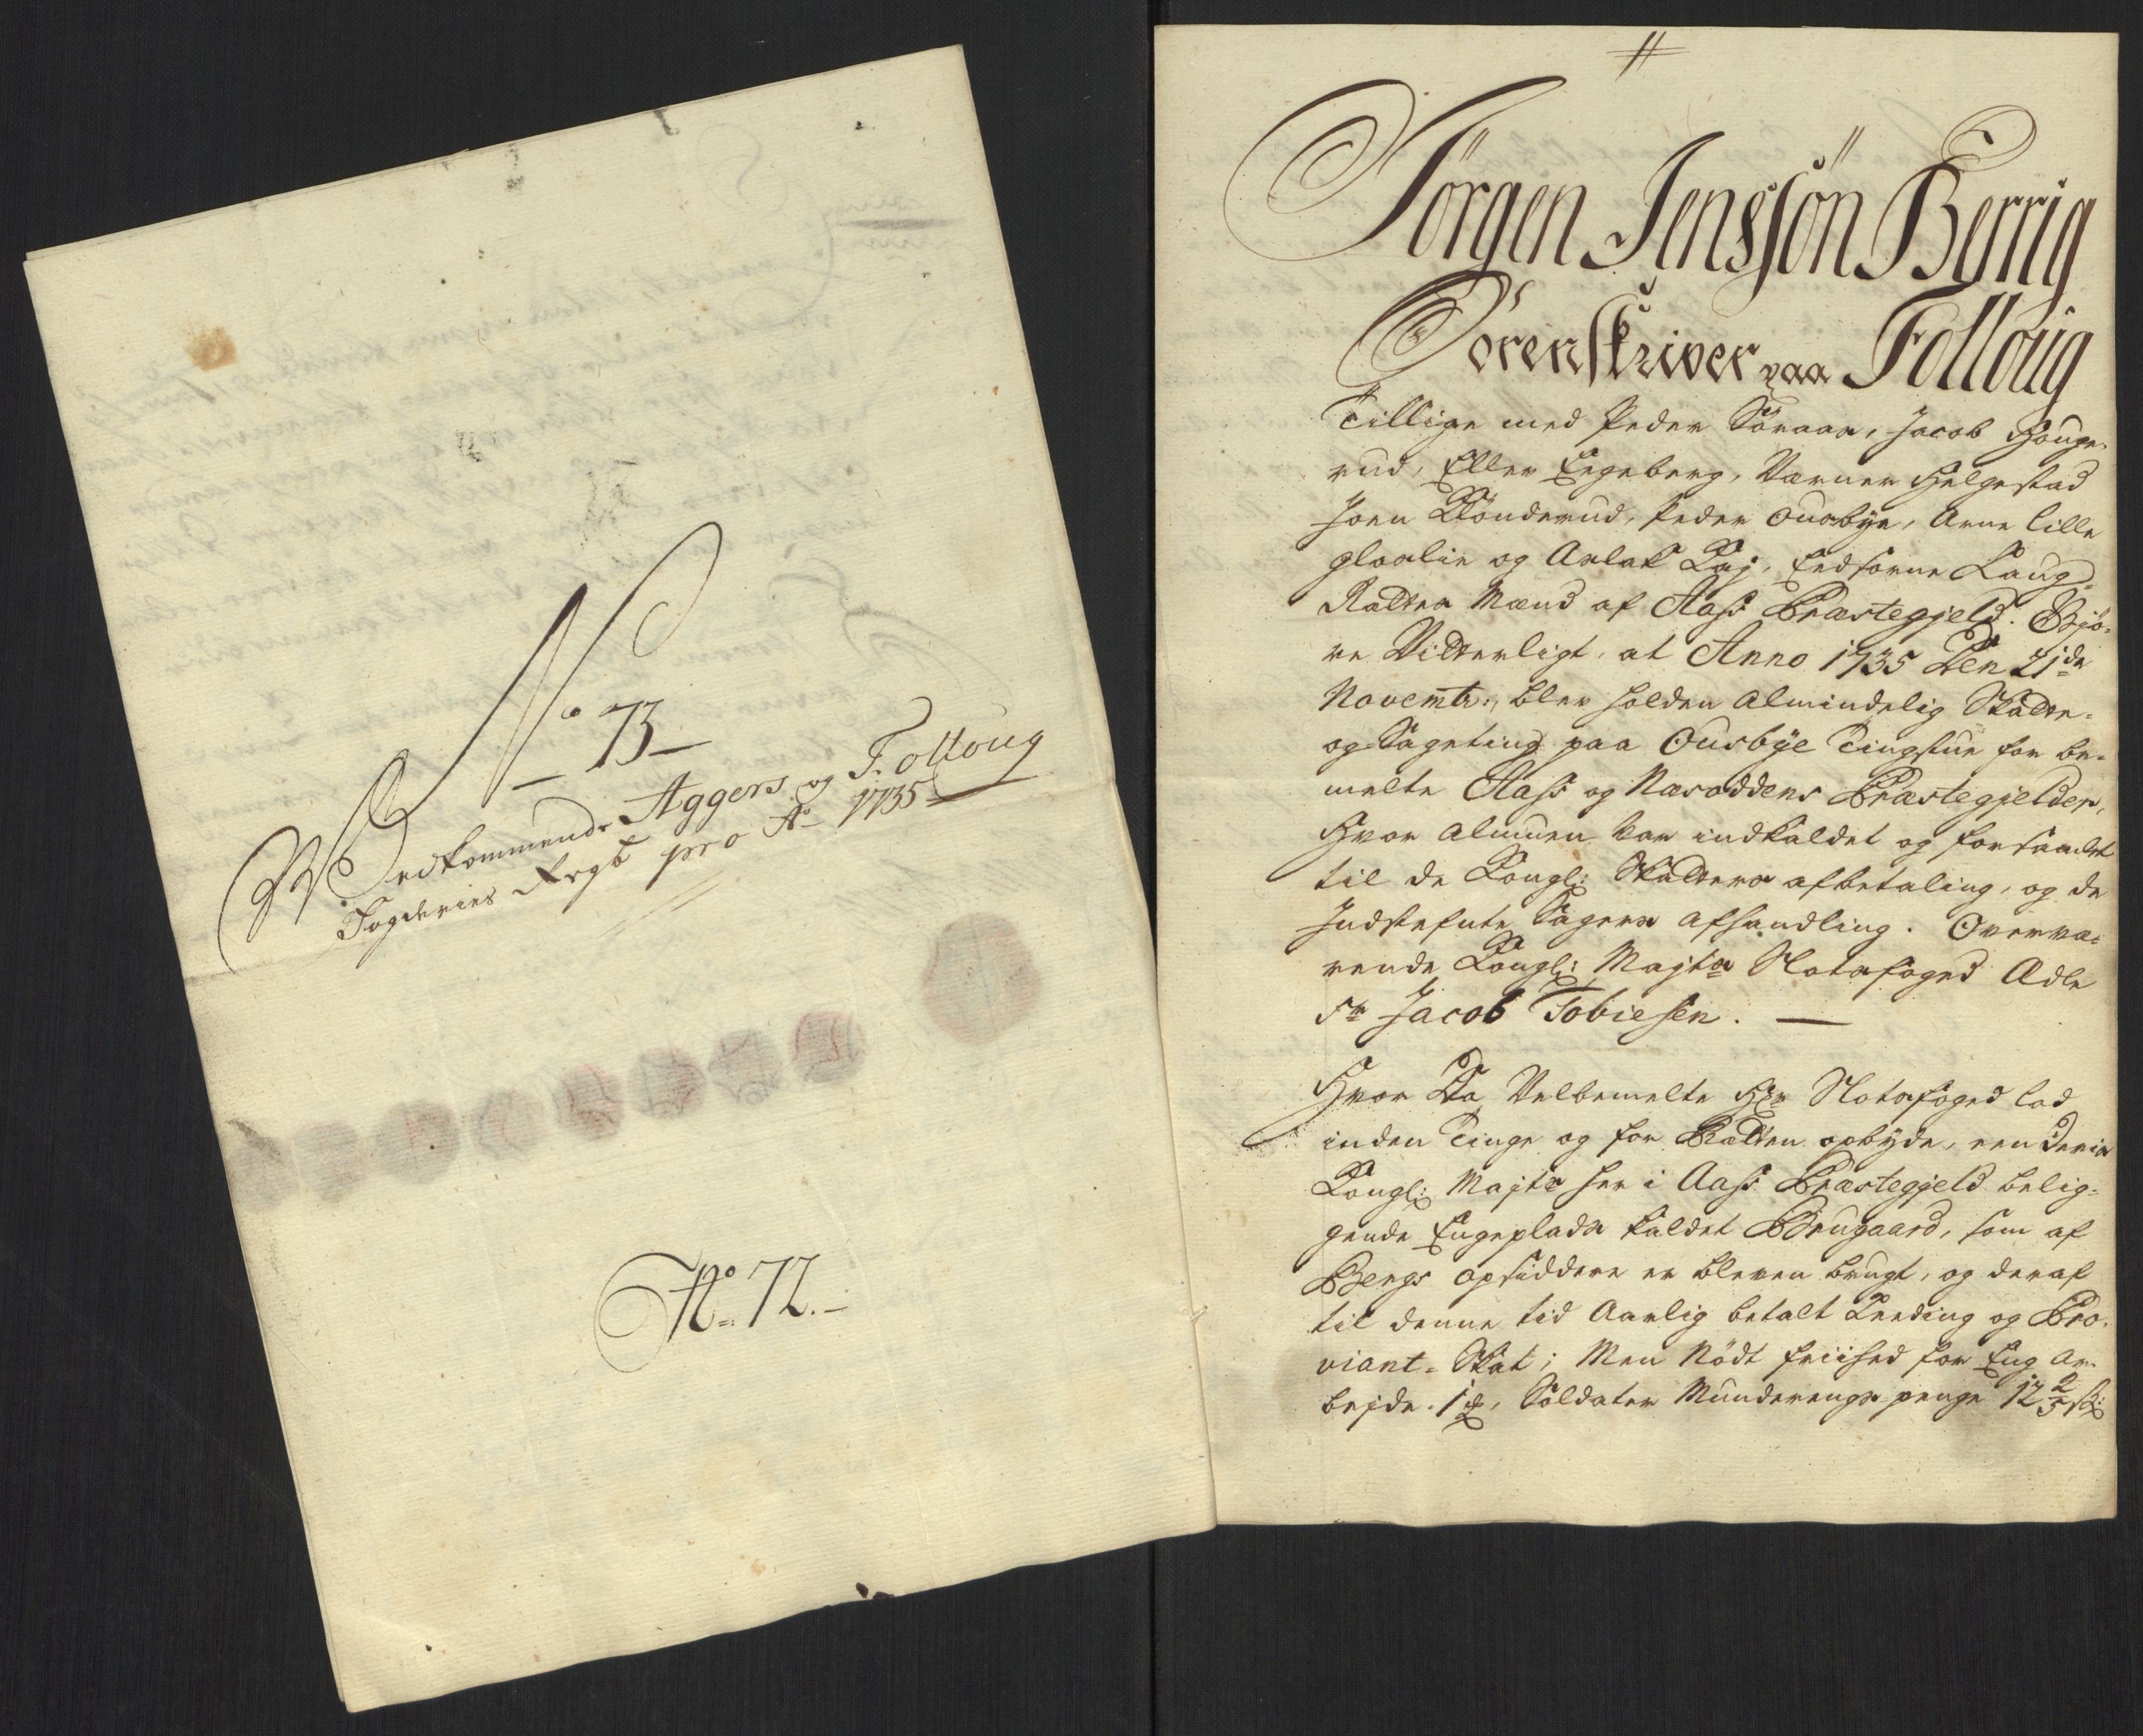 No 73
Vedkommende Aggers og Folloug
Fogderies Regb pro Ao 1735
No 72.
Jørgen Jenssøn Berrig
Sorenskriver paa Folloug
Tillige med Peder Søraas, Jacob Houge-
rud, Eller Eegeberg, Verner Helgestad
Joen Kionderud, Peder Ousbye, Arne Lille
og Aslak Eedsorne Laug-
Rættes Mænd af Aass Præstegjeld. Gjø-
re Vitterligt, at Anno 1735 Den 21de
Novembr:, blev holden Almindelig Skatte-
og Sageting paa Ousbye Tingstue for be-
melte Aass og Næsoddens Præstegjelder,
Hvor Almuen var indkaldet og forsamlet
til de Kongl: Skatters afbetaling, og de
Indstefnte Sagers afhandling. Overvæ-
rende Kongl: Majts Slotsfoged Ædle
Sr Jacob Tobiesen.
Hvor Da Velbemelte Hr Slotsfoged lod
inden Tinge og for Rætten opbyde, een Deris
Kongl: Majts her i Aass Præstegjeld belig-
gende Engeplads kaldet Brugaard, som af
Bergs opsiddere er bleven brugt, og deraf
til denne tid Aarlig betalt Leeding og Pro-
viant-Skat; Men Nødt friihed for Eng Ar-
bejde. 1 , Soldater Munderings penge 12 2/5 sk: